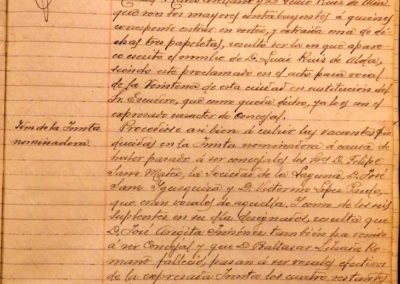 que son los mayores contribuyentes á quienes
corresponde entrar en sorteo, y extraida una de di-
chas tres papeletas, resultó ser la en que apare-
ce escrito el nombre de D. Luis Ruiz de Alda,
siendo este proclamado en el acto para vocal
de la Veintena de esta ciudad en sustitucion del
Sr. Encisso, que como queda dicho, ya lo es con el
expresado caracter de Concejal.
Idem de la Junta
nominadora.
Procedióse tambien á cubrir las vacantes pro-
ducidas en la Junta nominadora á causa de
haber pasado á ser concejales los Srs. D. Felipe
Sanz Mateo, D. José
Sanz y D. Victorino Lopez Rueda,
que eran vocales de aquella. Y como de los seis
suplentes en su dia designados, resulta que
D. José Angita Jimenez tambien ha venido
á ser Concejal y que D. Baltasar
falleció, pasan á ser vocales efectivos
de la expresada Junta los cuatro restantes